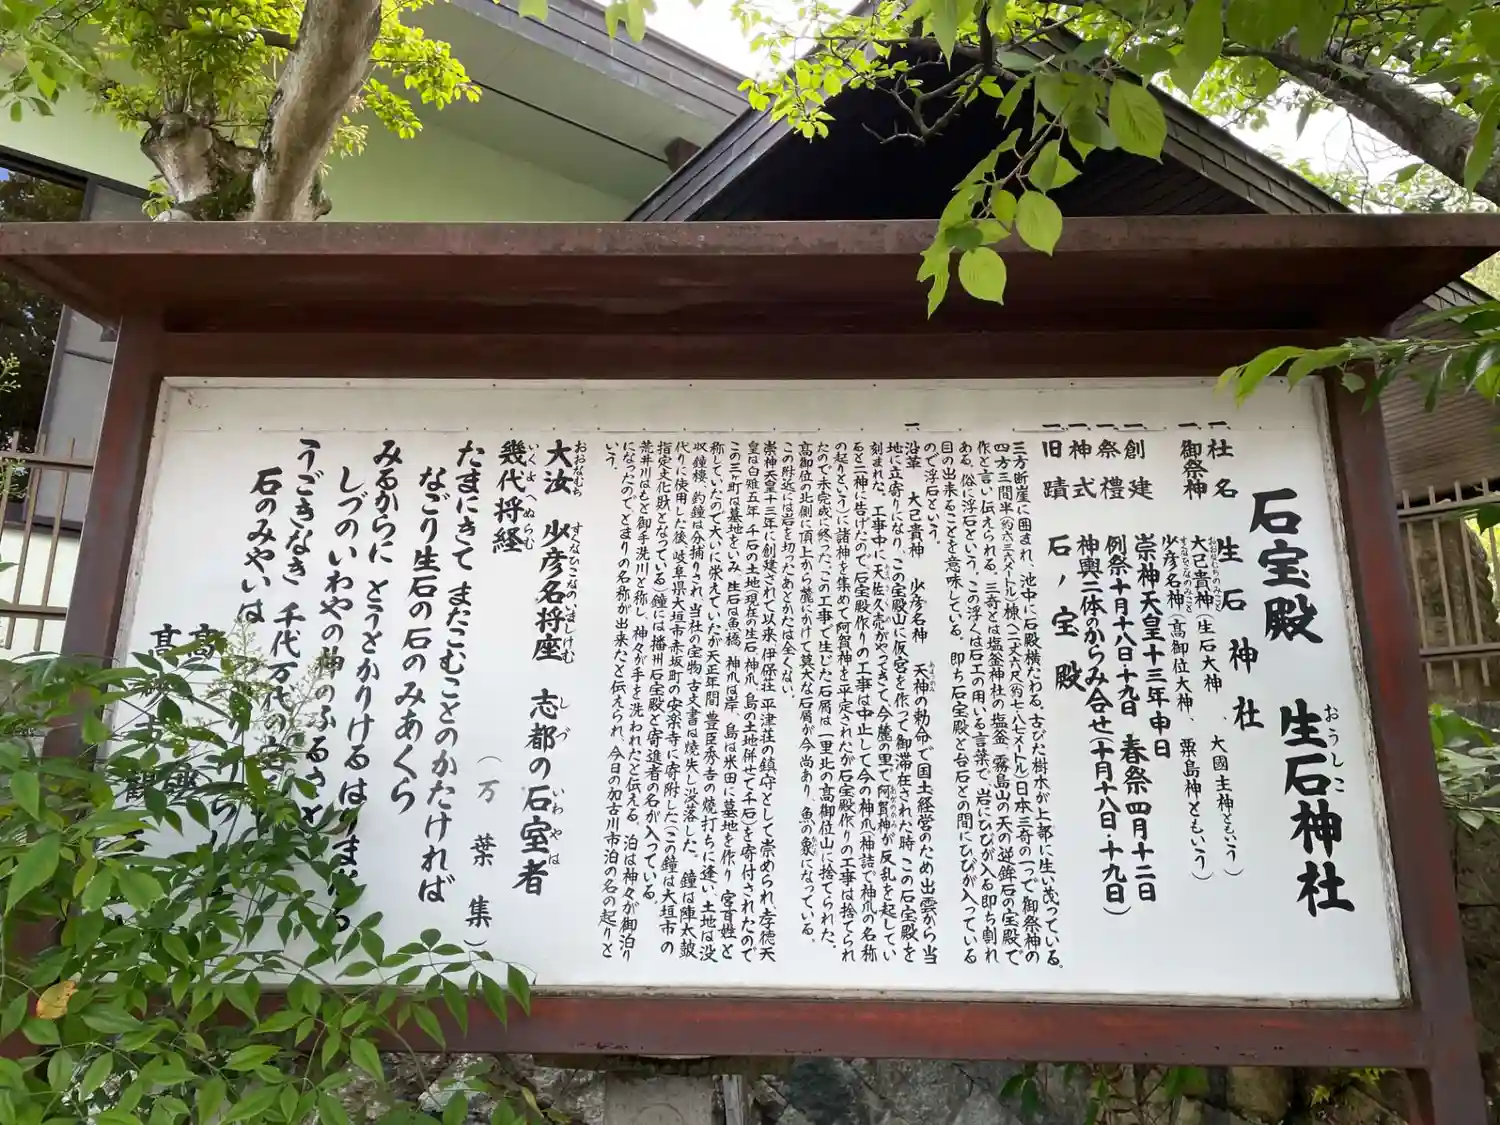 石宝殿 生石神社
おうしこ
一 社名 生石神社
一 御祭神 大己貴神(生石大神、大國主神ともいう)
おおなむちのみこと
少彦名神(高御位大神、粟島神ともいう)
すくなひこなのみこと
一 創建 崇神天皇十三年申日
一 祭禮 例祭十月十八日十九日 春祭四月十二日
一 神式 神輿二体のからみ合せ(十月十八日・十九日)
一 旧蹟 石ノ宝殿
三方断崖に囲まれ、池中に石殿横たわる。古びた樹木が上部に生い茂っている。
四方三間半(約六・三六メートル)棟へ二丈六尺(約七・八七メートル)日本三奇の一つで御祭神の
作と言い伝えられる。三奇とは塩釜神社の塩釜、霧島山の天の逆鉾石の宝殿で
ある。俗に浮石という。この浮くとは石工の用いる言葉で、岩にひびが入る即ち割れ
目の出来ることを意味している。即ち石宝殿と台石との間にひびが入っている
ので浮石という。
一 沿革 大己貴神 少彦名神 天神の勅命で国土経営のため出雲から当
地に立寄りになり、この宝殿山に仮宮を作って御滞在された時 この石宝殿を
刻まれた。工事中に天佐久売がやってきて今麓の里で阿賀神が反乱を起してい
ると二神に告げたので石宝殿作りの工事は中止して今の神爪(神詰で神爪の名称
の起りという)に諸神を集めて阿賀神を平定されたが石宝殿作りの工事は捨てられ
たので未完成に終った。この工事で生じた石屑は一里北の高御位山に捨てられた、
高御位の北側に頂上から麓にかけて莫大な石屑が今尚あり、魚の象になっている。
この附近には岩を切ったあとかたは全くない。
崇神天皇十三年に創建されて以来伊保荘、平津荘の鎮守として崇められ、孝徳天
皇は白雉五年、千石の土地現在の生石、神爪、島の土地併せて千石)を寄付されたので
この三ヶ町は墓地をいみ、生石は魚橋、神爪は岸、島は米田に墓地を作り、宮百姓と
称していたので大いに栄えていたが天正年間、豊臣秀吉の焼打ちに逢い、土地は没
収鐘楼、釣鐘は分捕りされ、当社の宝物、古文書は焼失し没落した。鐘は陣太鼓
代りに使用した後岐阜県大垣市赤坂町の安楽寺に寄附した(この鐘は大垣市の
指定文化財となっている)鐘には播州石宝殿と寄進者の名が入っている。
荒井川はもと御手洗川と称し、神々が手を洗われたと伝える。泊は神々が御泊り
になったので、とまりの名称が出来たと伝えられ、今日の加古川市泊の名の起りと
いう。
大汝 少彦名将座 志都の石室者
おおなむち すくなひこなのいましけむ しづ いわやは
幾代将経
いくよへぬらむ
(万葉集)
たまにきて またこむことのかたければ
なごり生石の石のみあくら
みるからに とうとかりける
しづのいわやの神のふるさと
うごきなき 千代万代の
石のみやいは